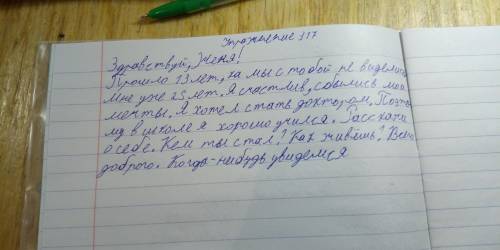 Упражнение 317
Здравствуй, Женя!
Прошло 13 лет, за мы с тобой не виделись
Мне уже 25 лет. Я счастлив, сбылись мои
мечты, Я хотел стать доктором, Поэто
му в школе я хорошо учился. Расскажи
о себе. Кем ты стал? Как живёшь? Всего
доброго. Когда-нибудь увидемся